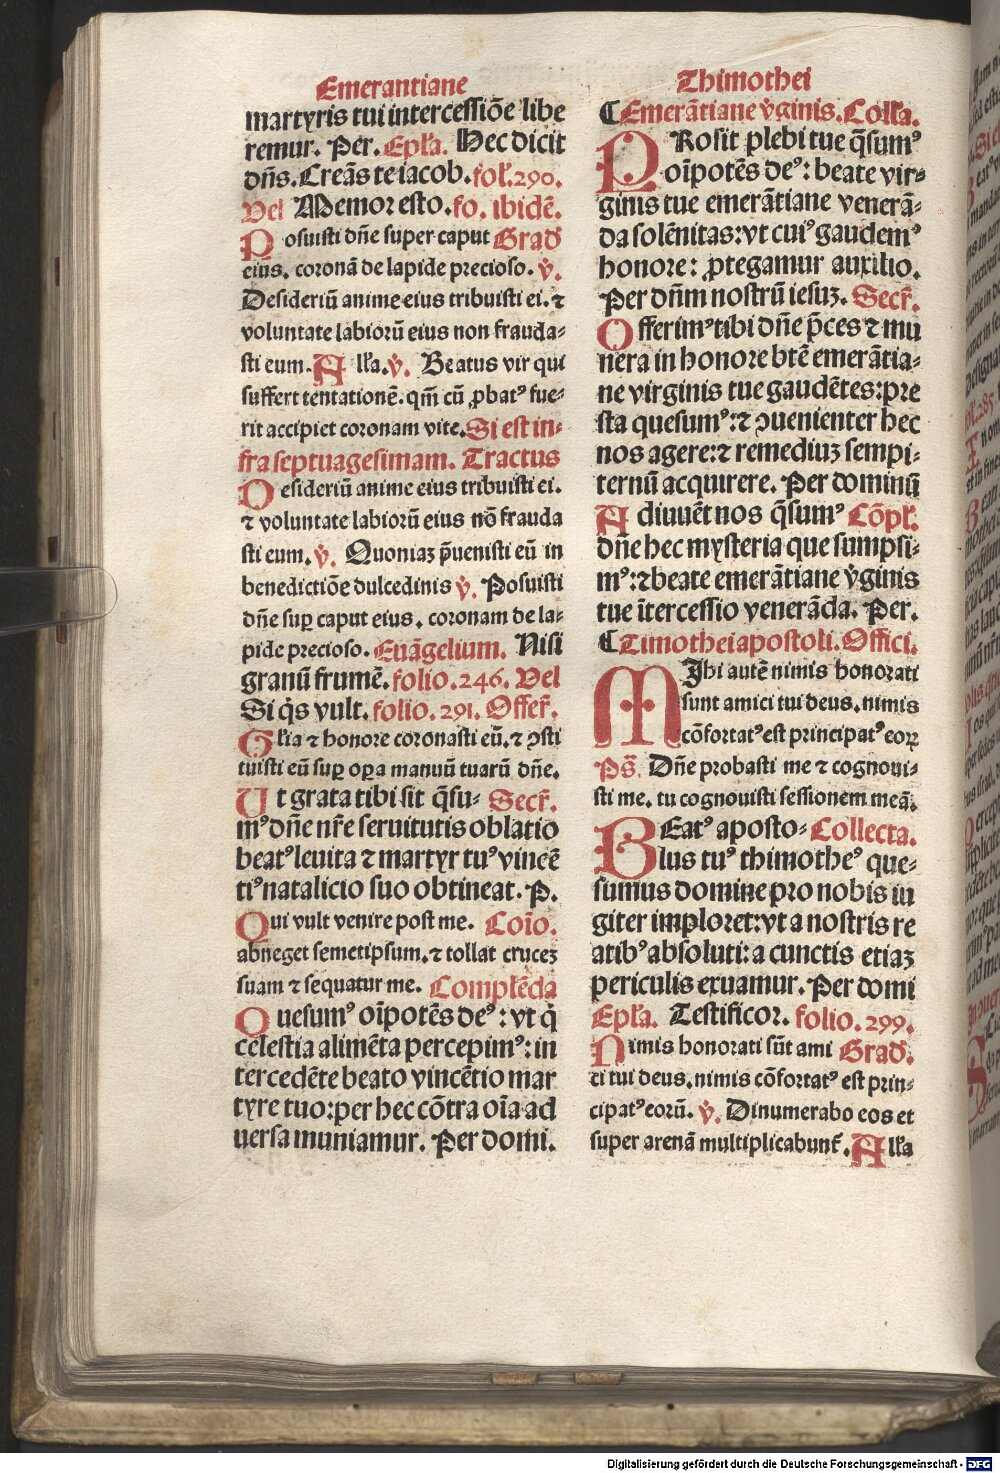 Emerantiane
martyris tui intercessiōe libe
remur. Per. Epl̄a. Hec dicit
dn̄s. Creās te iacob. fol̄. 290.
Vel Memor esto. fo. ibidē.
Posuisti dn̄e super caput Grad̄
eius. coronā de lapide precioso. ꝟ.
Desideriū anime eius tribuisti ei. ⁊
voluntate labiorū eius non frauda⸗
sti eum. All̄a. ꝟ. Beatus vir qui
suffert tentationē. qm̄ cū ꝓbatꝰ fue⸗
rit accipiet coronam vite. Si est in⸗
fra septuagesimam. Tractus
Desideriū anime eius tribuisti ei.
⁊ voluntate labiorū eius nō frauda
sti eum. ꝟ. Quoniaꝫ p̄uenisti eū in
benedictiōe dulcedinis ꝟ. Posuisti
dn̄e suꝑ caput eius. coronam de la⸗
pide precioso. Euāgelium. Nisi
granū frumē. folio. 246. Vel
Si q̄s vult. folio. 291. Offer̄.
Gl̄ia ⁊ honore coronasti eū. ⁊ ꝯsti
tuisti eū suꝑ oꝑa manuū tuarū dn̄e.
Ut grata tibi sit q̄su⸗ Secr̄.
mꝰ dn̄e nr̄e seruitutis oblatio
beatꝰ leuita ⁊ martyr tuꝰ vincē
tiꝰ natalicio suo obtineat. P.
Qui vult venire post me. Coīo.
abneget semetipsum. ⁊ tollat cruceꝫ
suam ⁊ sequatur me. Complēda
Quesumꝰ oīpotēs deꝰ: vt q̄
celestia alimēta percepimꝰ: in
tercedēte beato vincētio mar
tyre tuo: per hec cōtra oīa ad
uersa muniamur. Per domi.
Thimothei
¶ Emerātiane ꝟginis. Coll̄a.
PRosit plebi tue q̄sumꝰ
oīpotēs deꝰ: beate vir⸗
ginis tue emerātiane venerā⸗
da solēnitas: vt cuiꝰ gaudemꝰ
honore: ꝓtegamur auxilio.
Per dn̄m nostrū iesuꝫ. Secr̄.
Offerimꝰ tibi dn̄e p̄ces ⁊ mu
nera in honore btē emerātia⸗
ne virginis tue gaudētes: pre
sta quesumꝰ: ⁊ ꝯuenienter hec
nos agere: ⁊ remediuꝫ sempi⸗
ternū acquirere. Per dominū
Adiuuēt nos q̄sumꝰ Cōpl̄.
dn̄e hec mysteria que sumpsi⸗
mꝰ: ⁊ beate emerātiane ꝟginis
tue ītercessio venerāda. Per.
¶ Timothei apostoli. Offici.
MIhi autē nimis honorati
sunt amici tui deus. nimis
cōfortatꝰ est principatꝰ eoꝝ
Ps̄. Dn̄e probasti me ⁊ cognoui⸗
sti me. tu cognouisti sessionem meā.
BEatꝰ aposto⸗ Collecta.
lus tuꝰ thimotheꝰ que⸗
sumus domine pro nobis iu
giter imploret: vt a nostris re
atibꝰ absoluti: a cunctis etiaꝫ
periculis exuamur. Per domi
Epl̄a. Testificor. folio. 299.
Nimis honorati sūt ami Grad̄.
ci tui deus. nimis cōfortatꝰ est prin⸗
cipatꝰ eorū. ꝟ. Dinumerabo eos et
super arenā multiplicabunt̄. All̄a
Digitalisierung gefördert durch die Deutsche Forschungsgemeinschaft - DFG